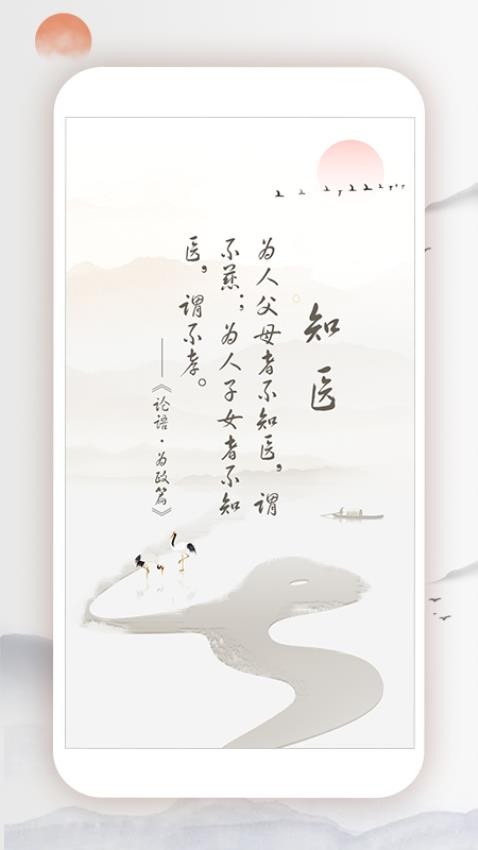 知医
为人父母者不知医，谓
不慈；为人子女者不知
医，谓不孝。
——《论语·为政篇》